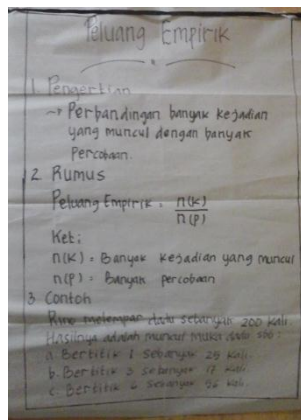 Peluang Empirik
1. Pengertian
~> Perbandingan banyak kejadian
yang muncul dengan banyak
Percobaan.
2. Rumus
Peluang Empirik = n(K)
n(P)
Ket:
n(K) = Banyak kejadian yang muncul
n(P) = Banyak percobaan
3. Contoh
Rino melempar dadu sebanyak 200 kali.
Hasilnya adalah muncul muka dadu
a. Bertitik 1 Sebanyak 25 kali.
b. Bertitik 3 Sebanyak 17 kali.
c. Bertitik 6 Sebanyak 56 kali.